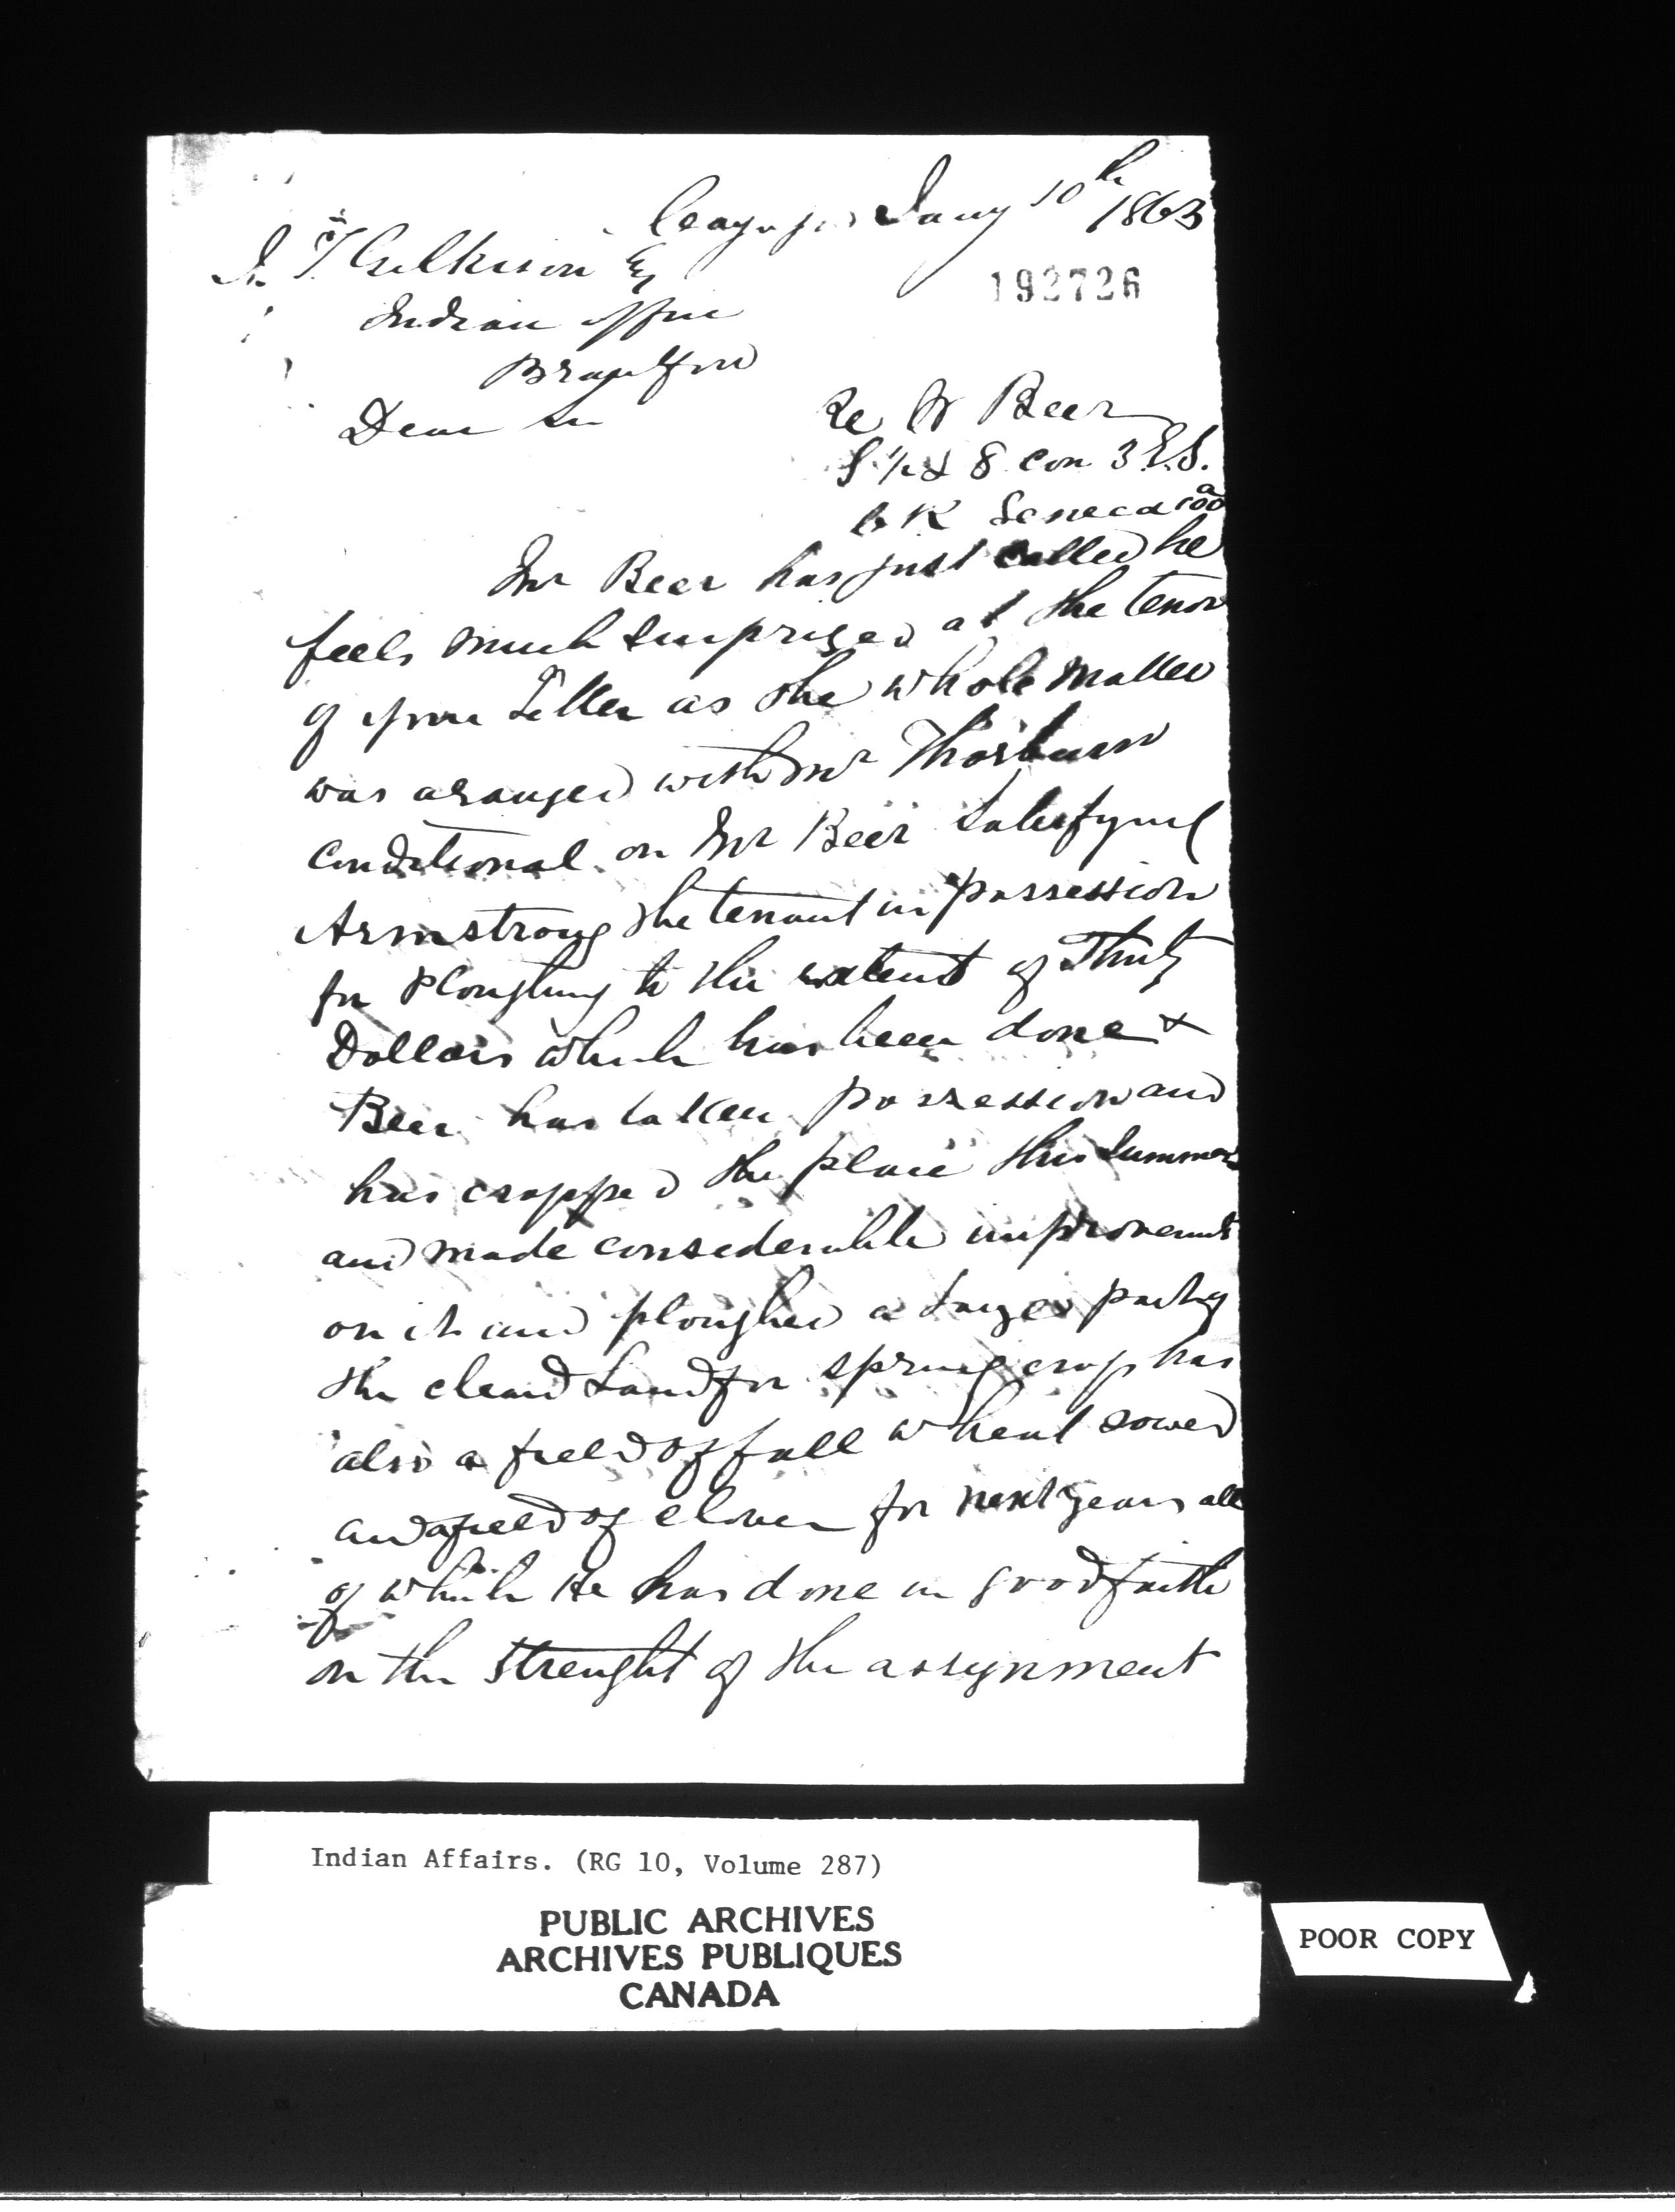 Cayuga Jany 10th 1863
J. T. Gilkison Esq
192726
Indian Office
Brantford
Dear Sir
Re W Beer
S 1/2 8 Con 3 E.S.
P K Seneca 100a
Mr Beer has just called he
feels much surprised at the tenor
of your Letter as the whole matter
was aranged with Mr Thorburn
Conditional on Mr Beer Satisfying
Armstrong the tenant in possession
for Ploughing to the extent of Thirty
Dollars which has been done &
Beer has taken possession and
has cropped the place this Summer
and made considerable improvements
on it and ploughed a large part of
the cleard Land for spring crop has
also a field of fall wheat sowed
and a field of clover for next year all
of which He has done in good faith
on the strenght of the assignment
Indian Affairs. (RG 10, Volume 287)
PUBLIC ARCHIVES
ARCHIVES PUBLIQUES
CANADA
POOR COPY